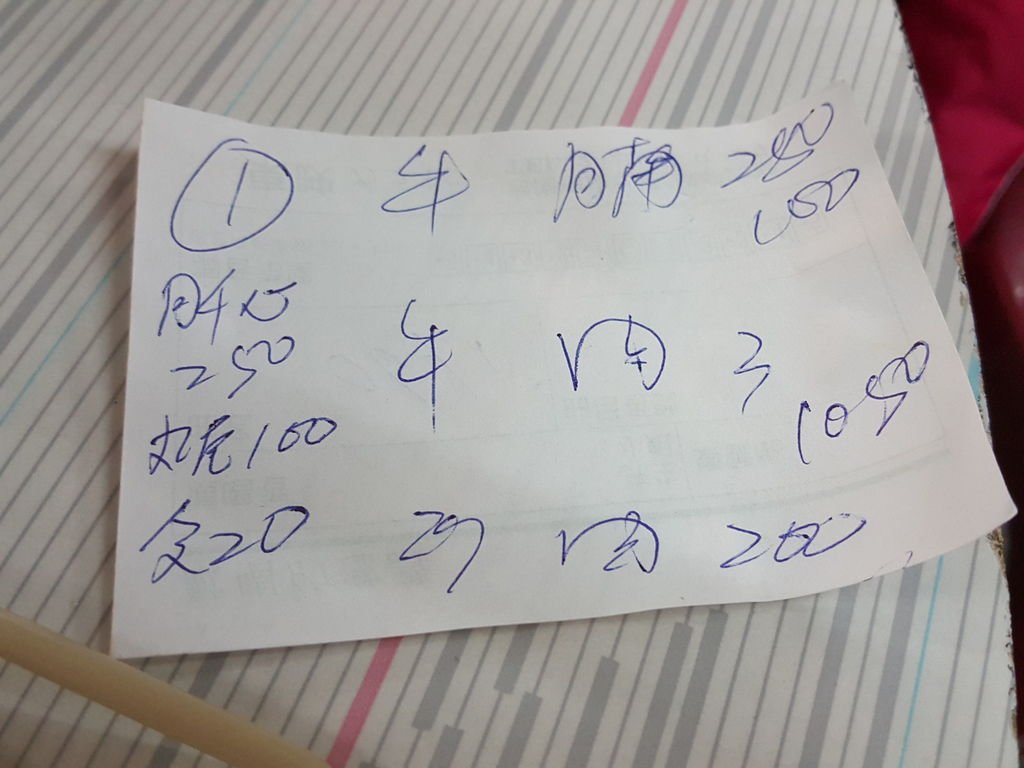 ① 牛 腩 250
100
肝×5
250 牛 肉 3
1050
丸 100
20 肉 200